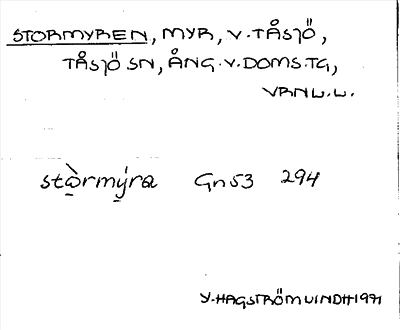 STORMYREN, MYR, V. TÅSJÖ,
TÅSJÖ SN, ÅNG. V. DOMS. TG,
stò̠rmý̠ra Gn53 294
Y. HAGSTRÖM LINDH 1971